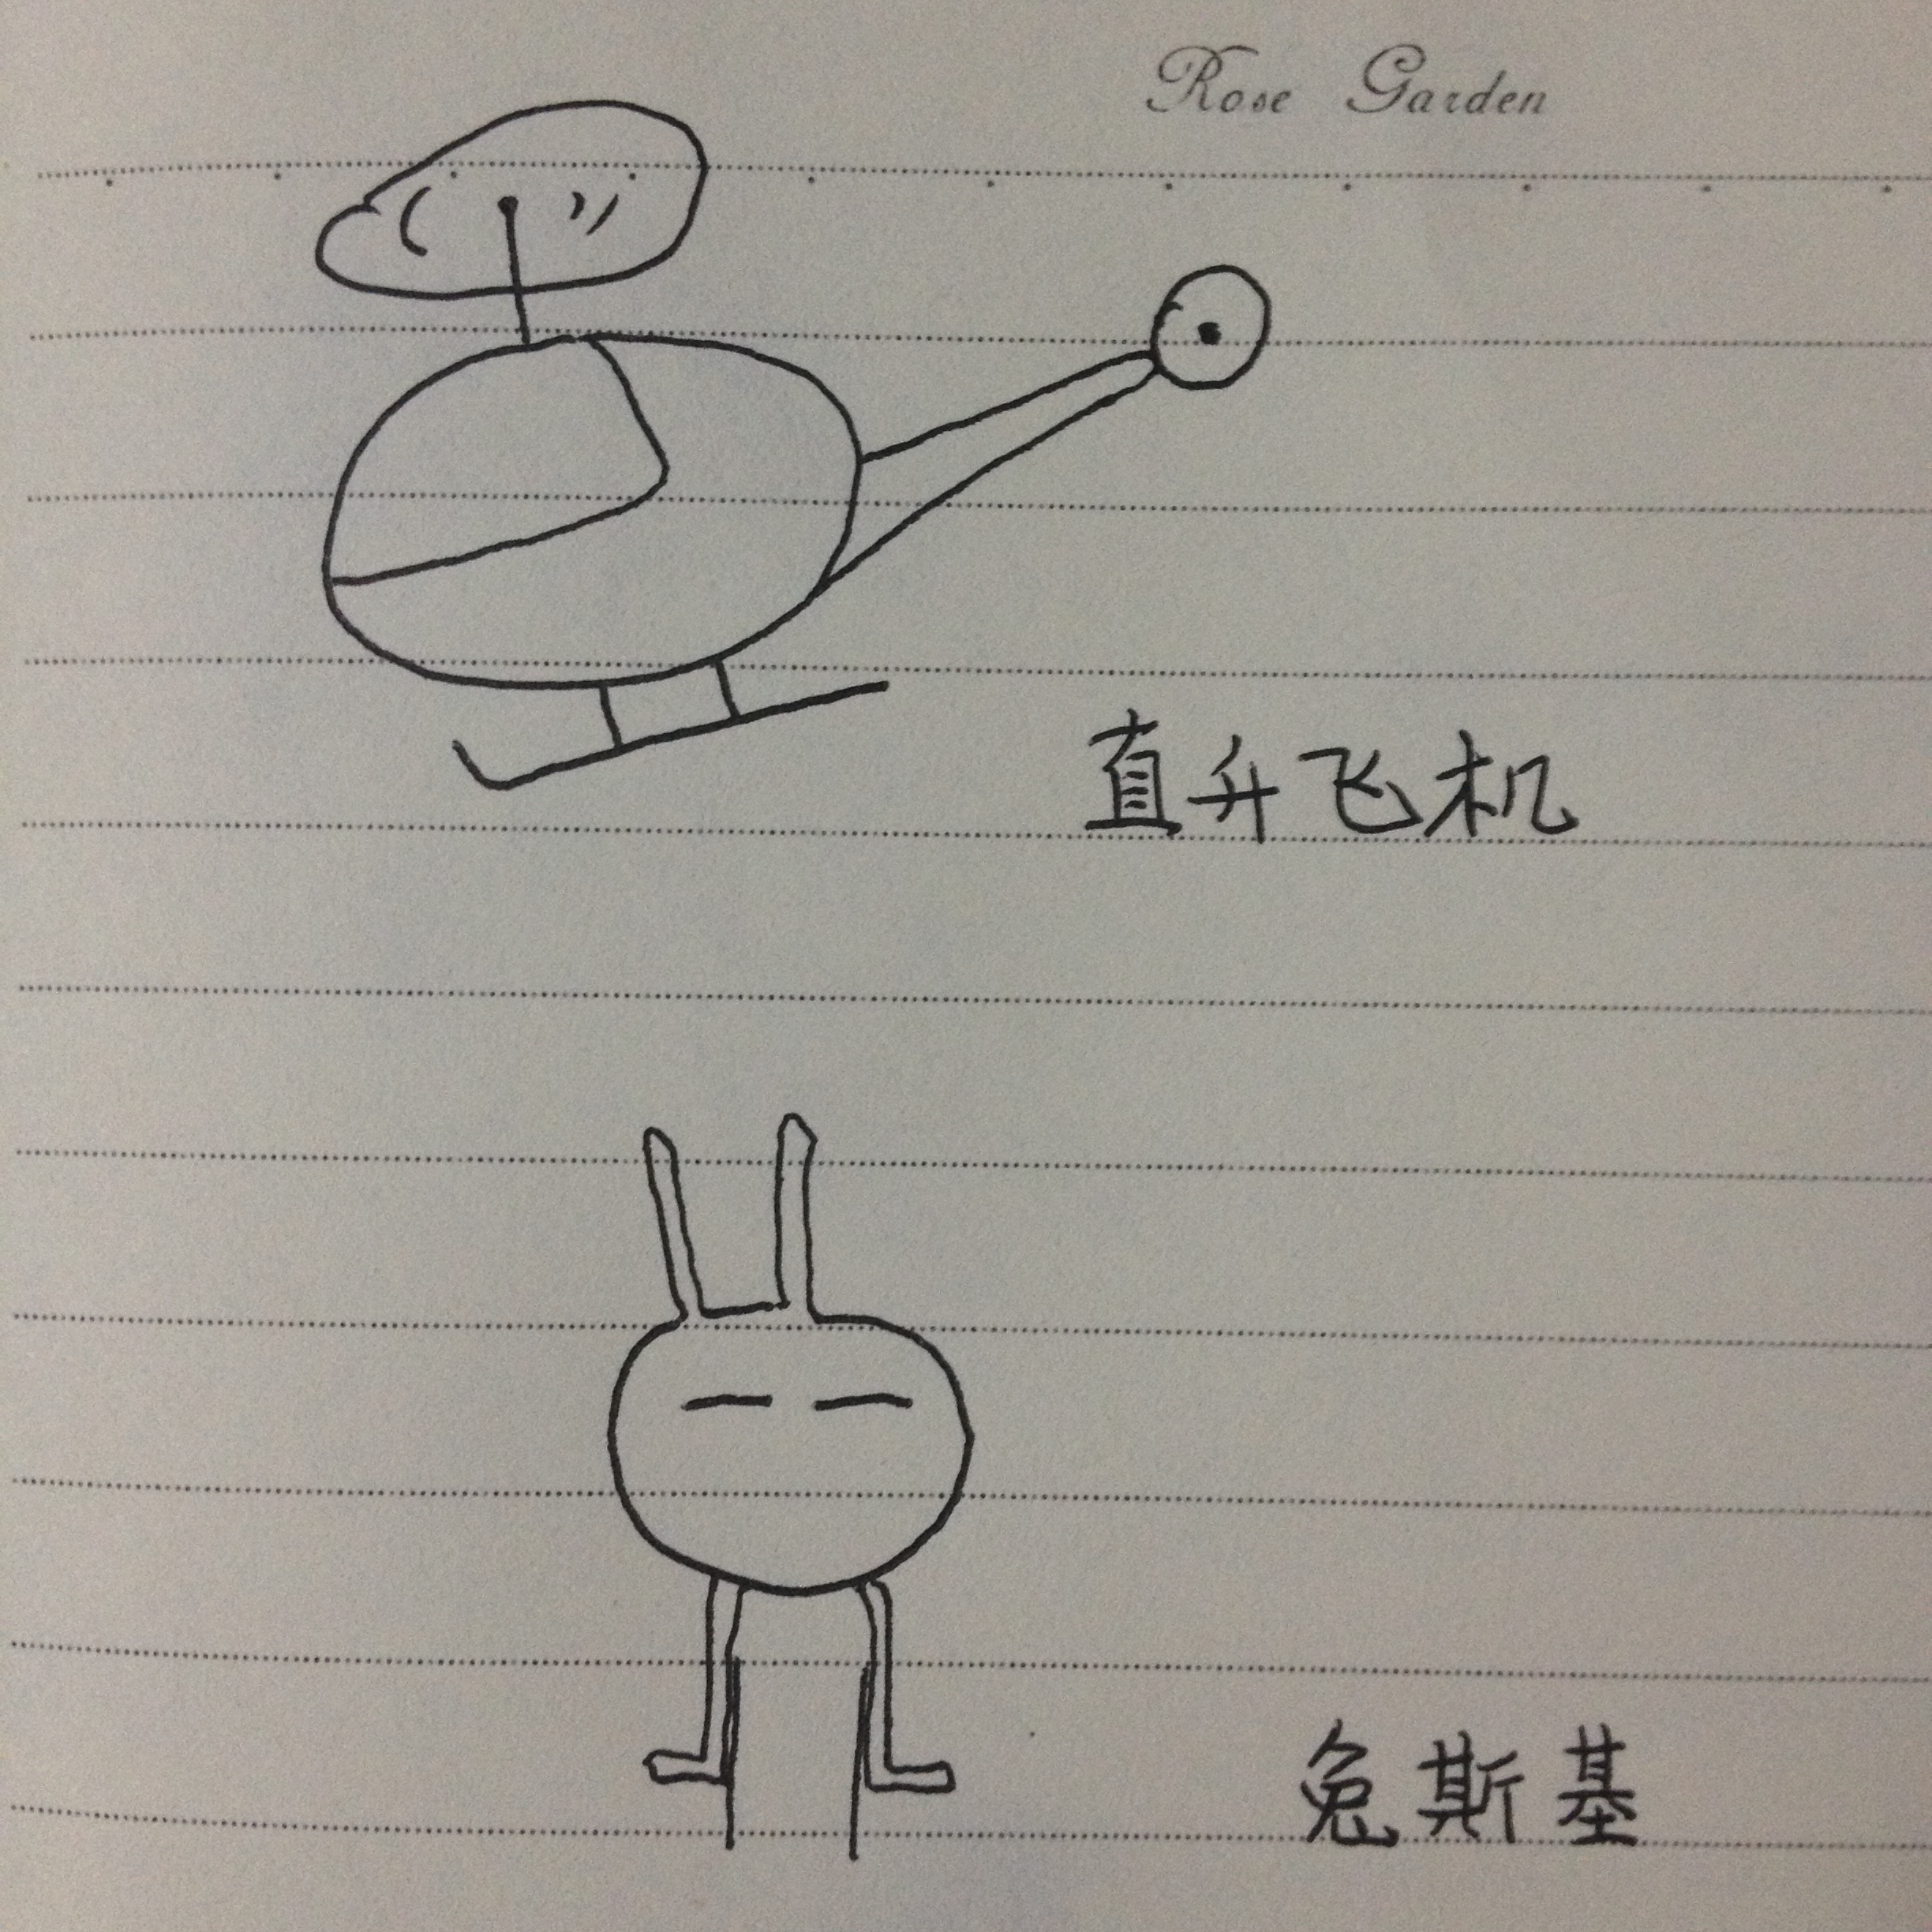 Rose Garden
直升飞机
兔斯基